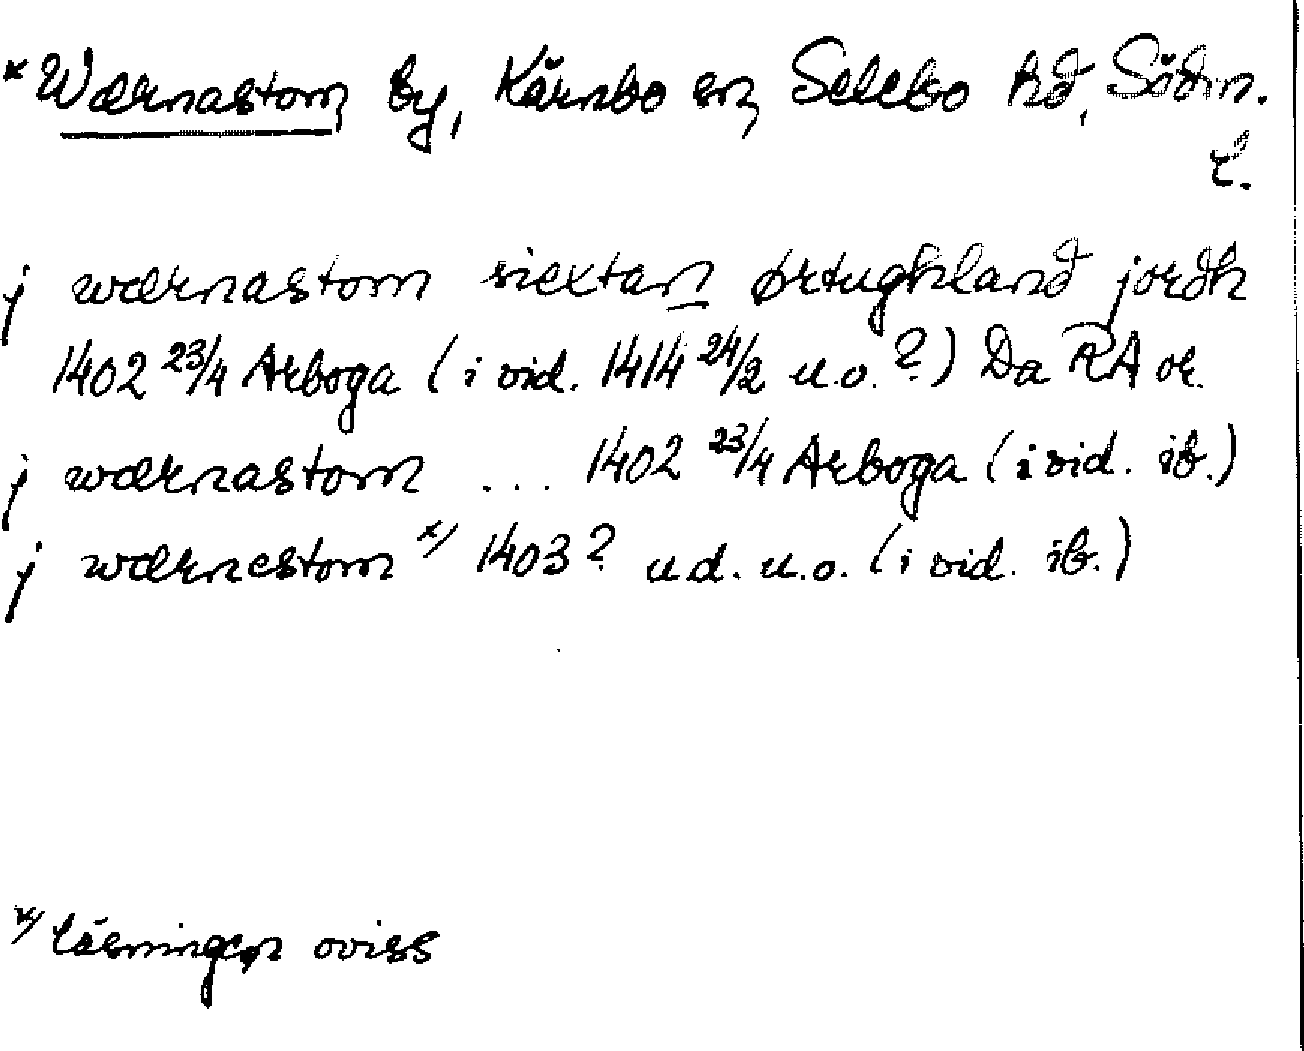 * Wærnastom, by, Kärnbo sn, Selebo hd, Södm.
l.
j wærnastom siextan ørtughland jordh
1402 23/4 Arboga (i vid. 1414 24/2 u.o.?) Da RA or.
j wærnastom ... 1402 23/4 Arboga (i vid. ib.)
j wærnestom x) 1403? u.d. u.o. (i vid. ib.)
x) läsningen oviss